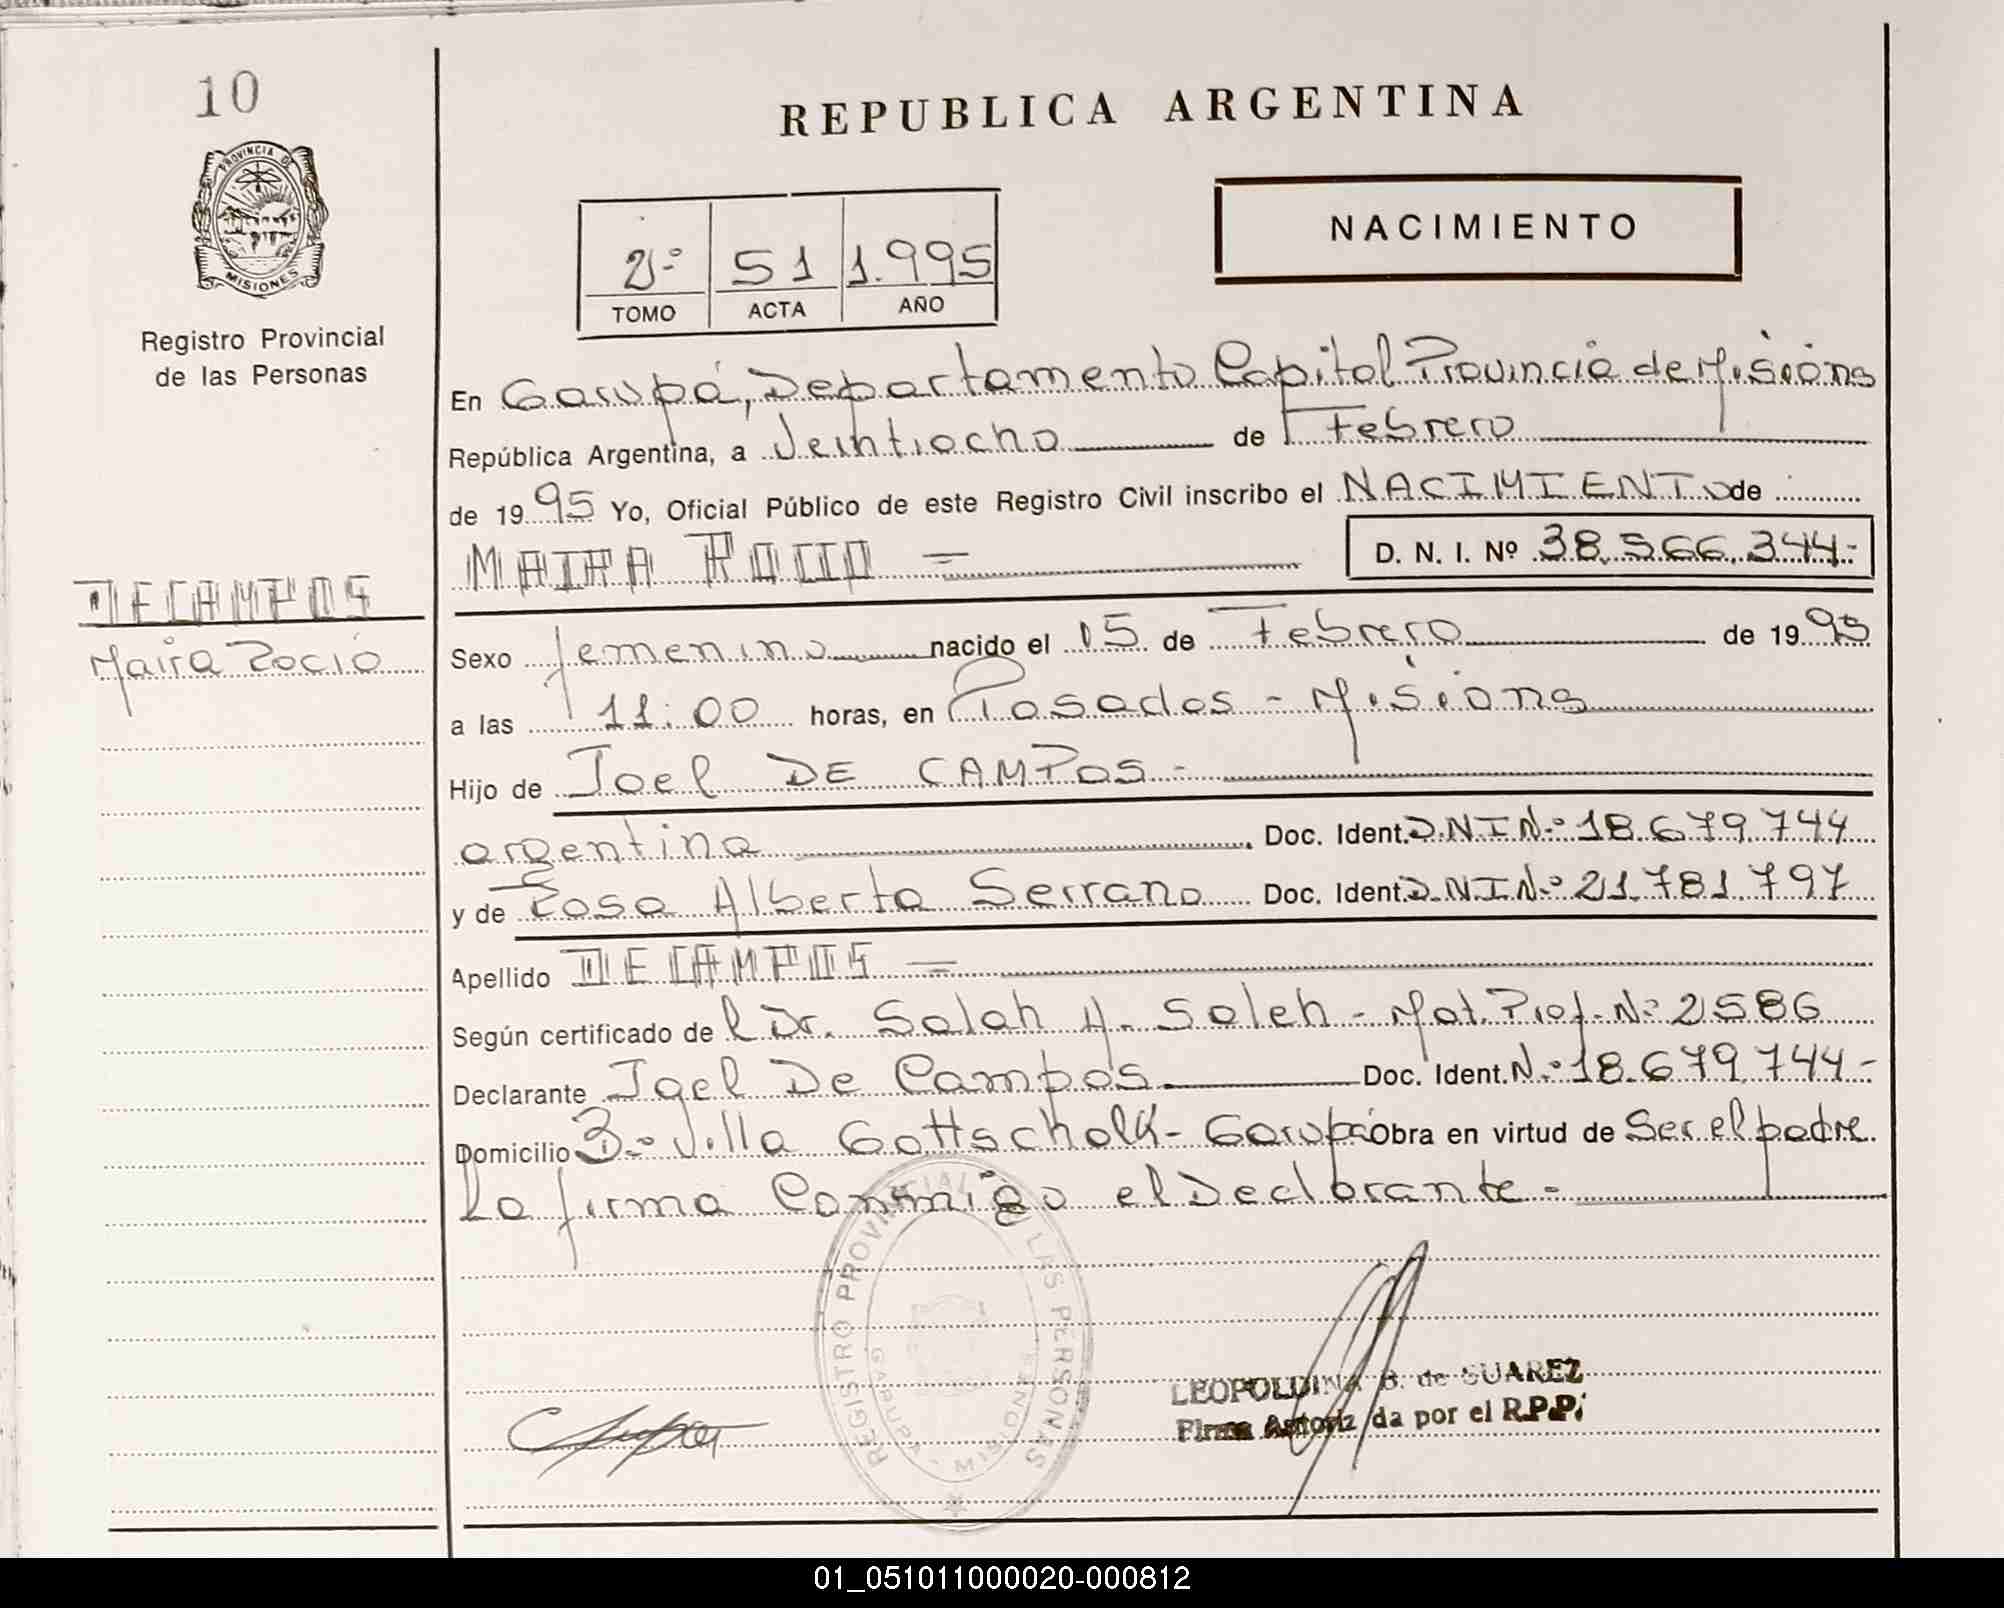 10
PROVINCIA DE
MISIONES
Registro Provincial
de las Personas
DE CAMPOS
Maira Rocio
REPUBLICA ARGENTINA
2º 51 1.995
TOMO ACTA AÑO
NACIMIENTO
En Garupá, Departamento Capital Provincia de Misions
República Argentina, a Veintiocho de Febrero
de 1995 Yo, Oficial Público de este Registro Civil inscribo el NACIMIENTO de
MAIRA ROCIO = D. N. I. Nº 38.566.344-
Sexo femenino nacido el 15 de Febrero de 1995
a las 11:00 horas, en Posadas - Misions
Hijo de Joel DE CAMPOS -
argentina Doc. Ident. D.N.I Nº 18.679.744
y de Rosa Alberta Serrano Doc. Ident. D.N.I Nº 21.781.797
Apellido DE CAMPOS =
Según certificado de l Dr. Salah A. Saleh - Mat. Prof. Nº 2586
Declarante Joel De Campos Doc. Ident. Nº 18.679.744-
Domicilio Bº Villa Gottschalk - Garupá Obra en virtud de Ser el padre.
La firma Conmigo el Declarante -
REGISTRO PROVINCIAL DE LAS PERSONAS
GARUPA - MISIONES
LEOPOLDINA B. de SUAREZ
Firma Autorizada por el R.P.P.
01_051011000020-000812